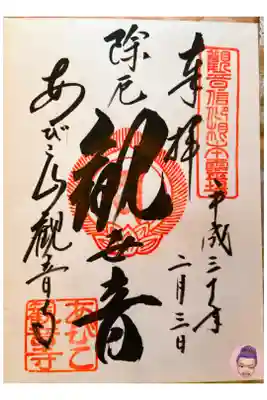 観音信仰根本霊場
奉拝
平成三十年
二月三日
除厄
観世音
あびこ山観音寺
あびこ
観音寺